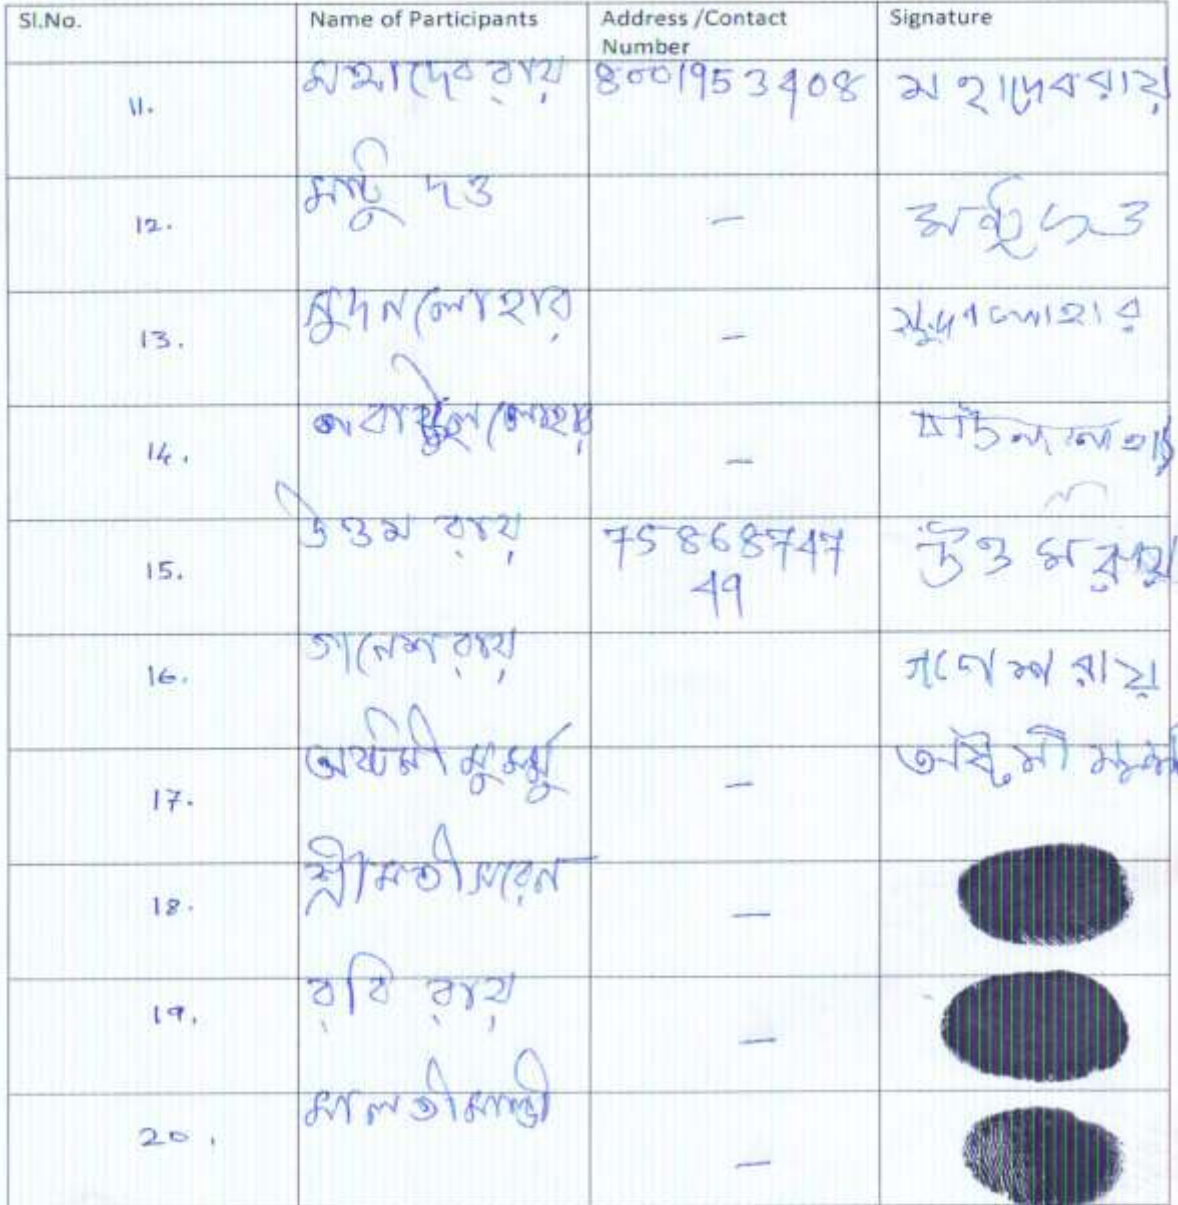 Sl.No. Name of Participants Address /Contact Number Signature
11. মহাদেব রায় 8001953408 মহাদেব রায়
12. মন্টু দত্ত — মন্টু দত্ত
13. লোহার — লোহার
14. লোহার — বাউল লোহার
15. উত্তম রায় 7586874749 উত্তম রায়
16. গনেশ রায় গণেশ রায়
17. অষ্টমী মুর্মু — অষ্টমী
18. শ্রীমতী সরেন —
19. রবি রায় —
20. মালতী মান্ডী —